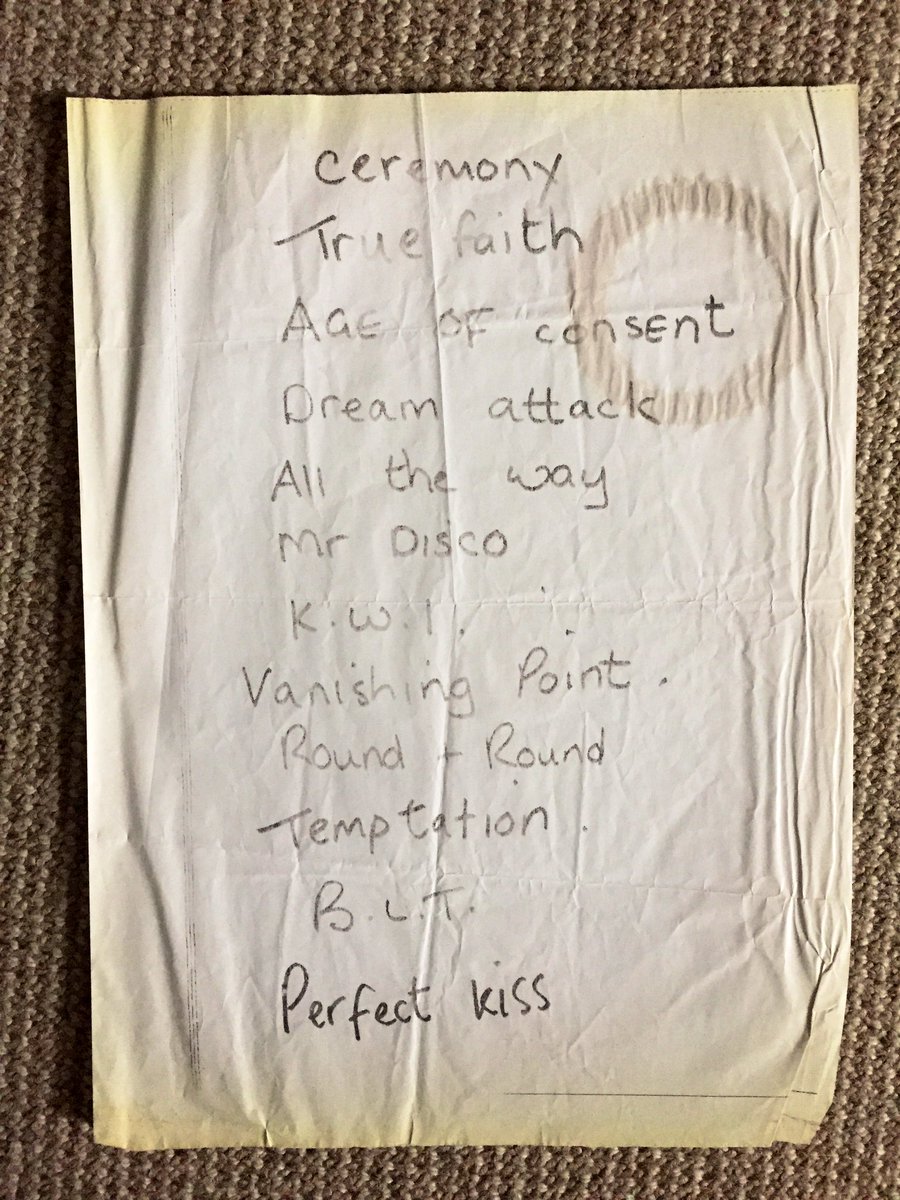 ceremony
True faith
AGE OF consent
Dream attack
All the way
Mr Disco
K.W.1.
Vanishing Point.
Round + Round
Temptation.
B.L.T.
Perfect kiss